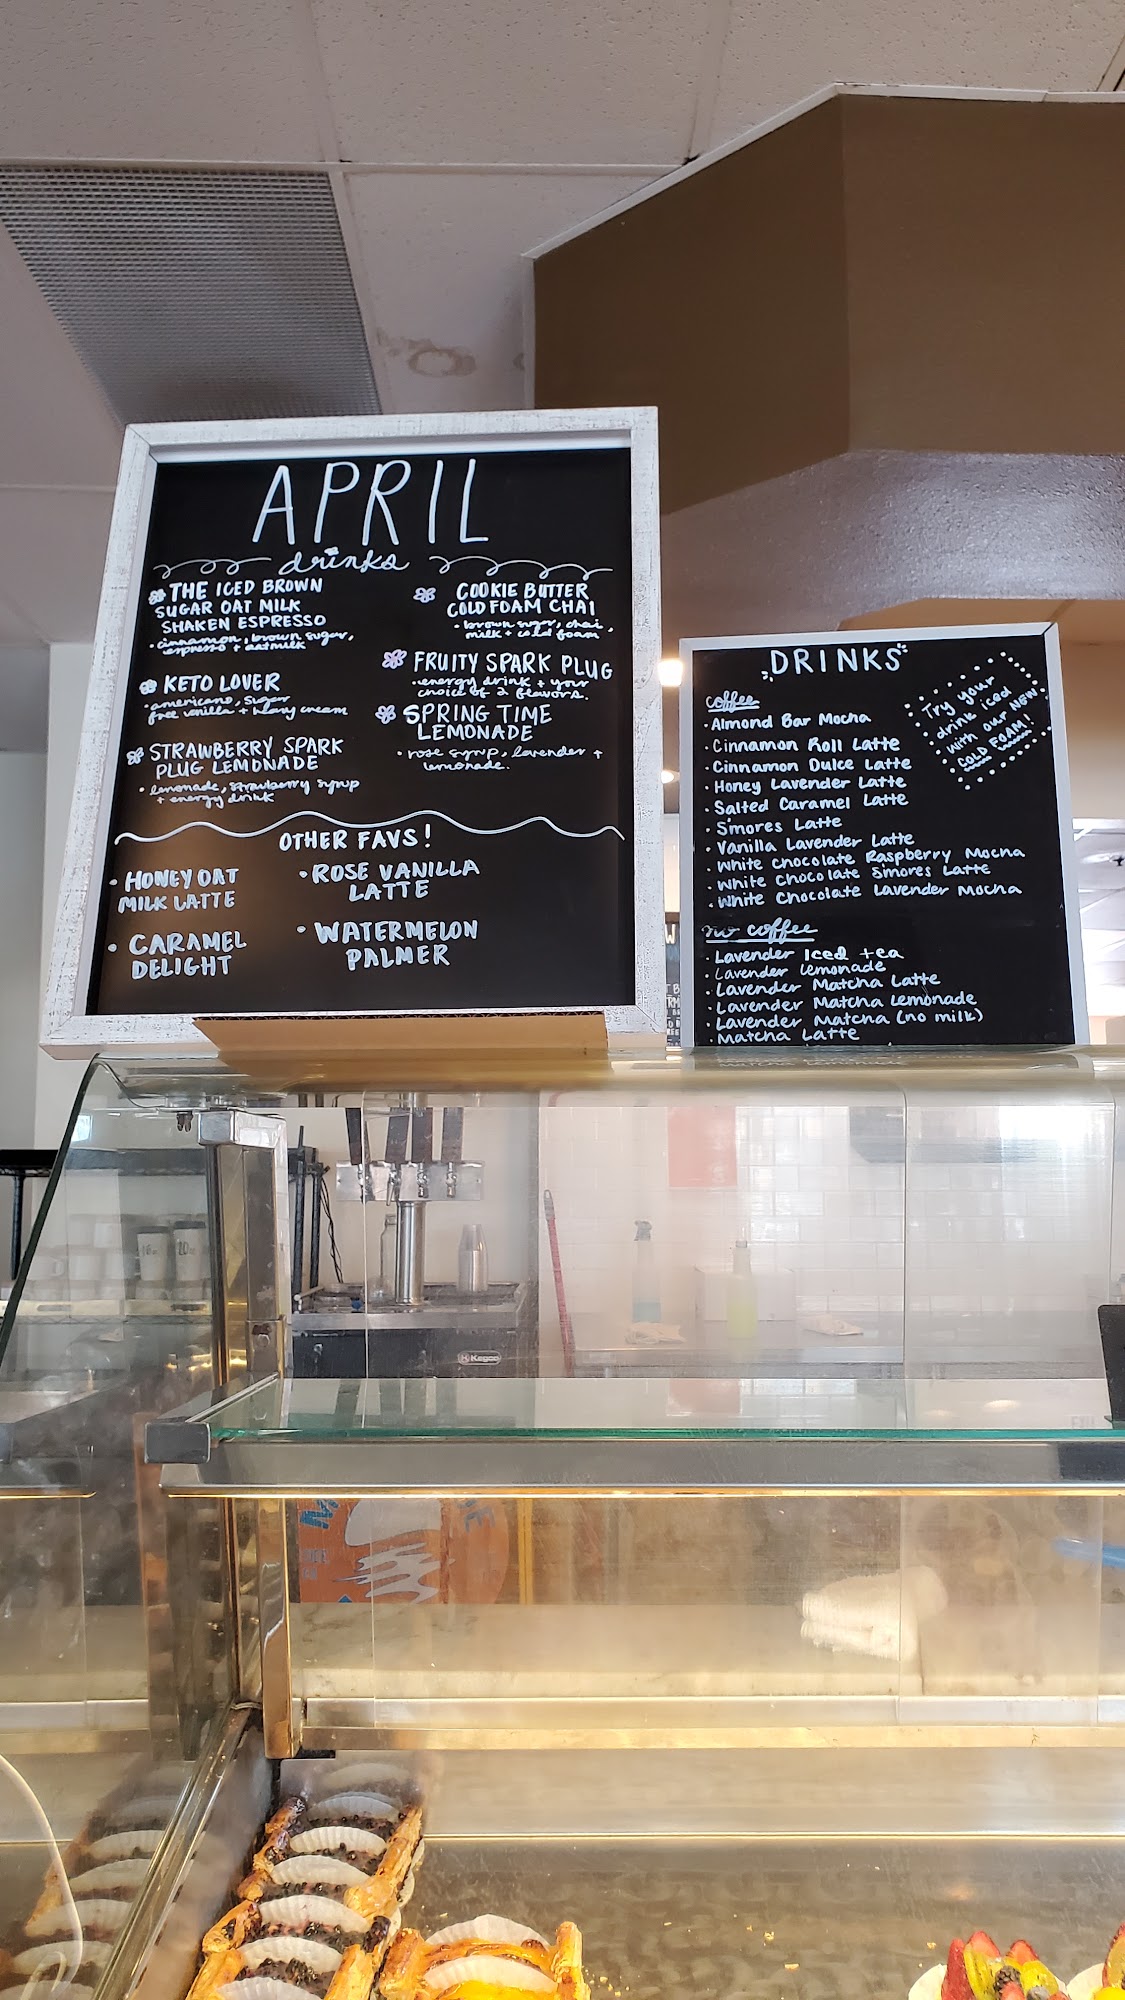 APRIL
drinks
THE ICED BROWN
SUGAR OAT MILK
SHAKEN ESPRESSO
• cinnamon, brown sugar,
espresso + oatmilk
KETO LOVER
• americano, sugar
free vanilla + heavy cream
STRAWBERRY SPARK
PLUG LEMONADE
• lemonade, strawberry syrup
+ energy drink
COOKIE BUTTER
COLD FOAM CHAI
• brown sugar, chai,
milk + cold foam
FRUITY SPARK PLUG
• energy drink + your
choice of 2 flavors.
SPRING TIME
LEMONADE
• rose syrup, lavender +
lemonade.
OTHER FAVS!
• HONEY OAT
MILK LATTE
• CARAMEL
DELIGHT
• ROSE VANILLA
LATTE
• WATERMELON
PALMER
DRINKS
coffee
• Almond Bar Mocha
• Cinnamon Roll Latte
• Cinnamon Dulce Latte
• Honey Lavender Latte
• Salted Caramel Latte
• S'mores Latte
• Vanilla Lavender Latte
• White Chocolate Raspberry Mocha
• White Chocolate S'mores Latte
• White Chocolate Lavender Mocha
Try your
drink iced
with our NEW
COLD FOAM!
no coffee
• Lavender Iced tea
• Lavender Lemonade
• Lavender Matcha Latte
• Lavender Matcha Lemonade
• Lavender Matcha (no milk)
• Matcha Latte
Kegco